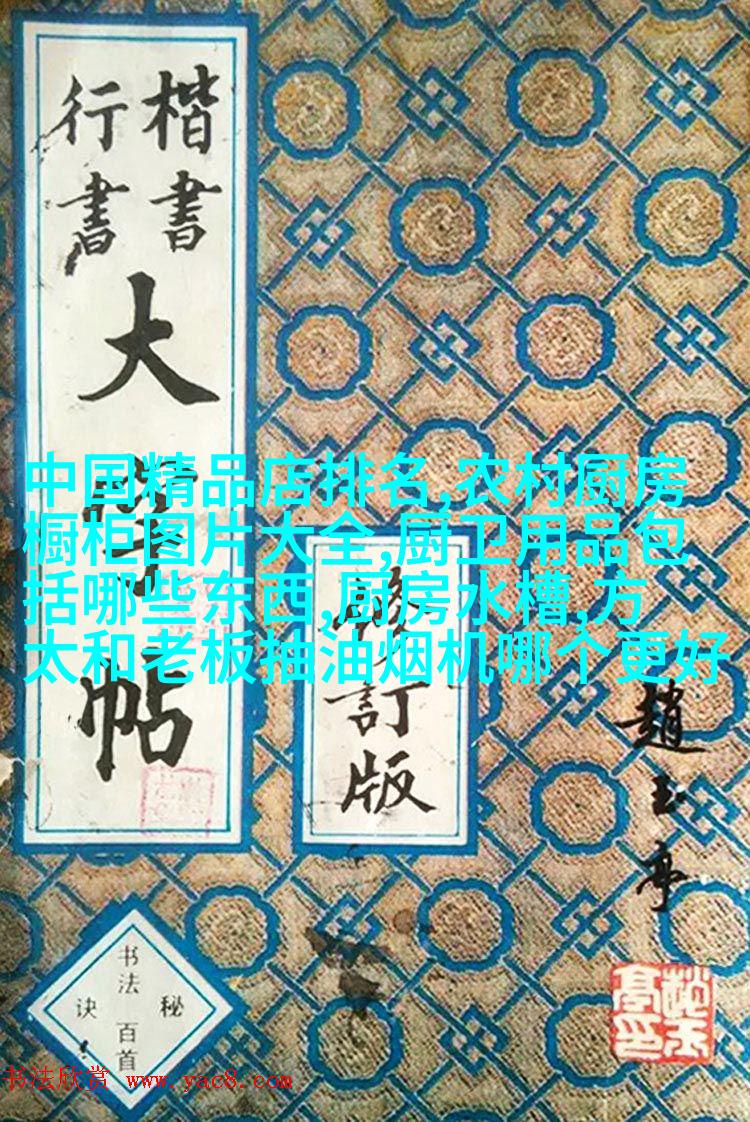 楷書
行書
大
帖
修訂版
趙玉亭
书法
秘诀
百首
中国精品店排名,农村厨房
橱柜图片大全,厨卫用品包
括哪些东西,厨房水槽,方
太和老板抽油烟机哪个更好
书法欣赏 www.yac8.com